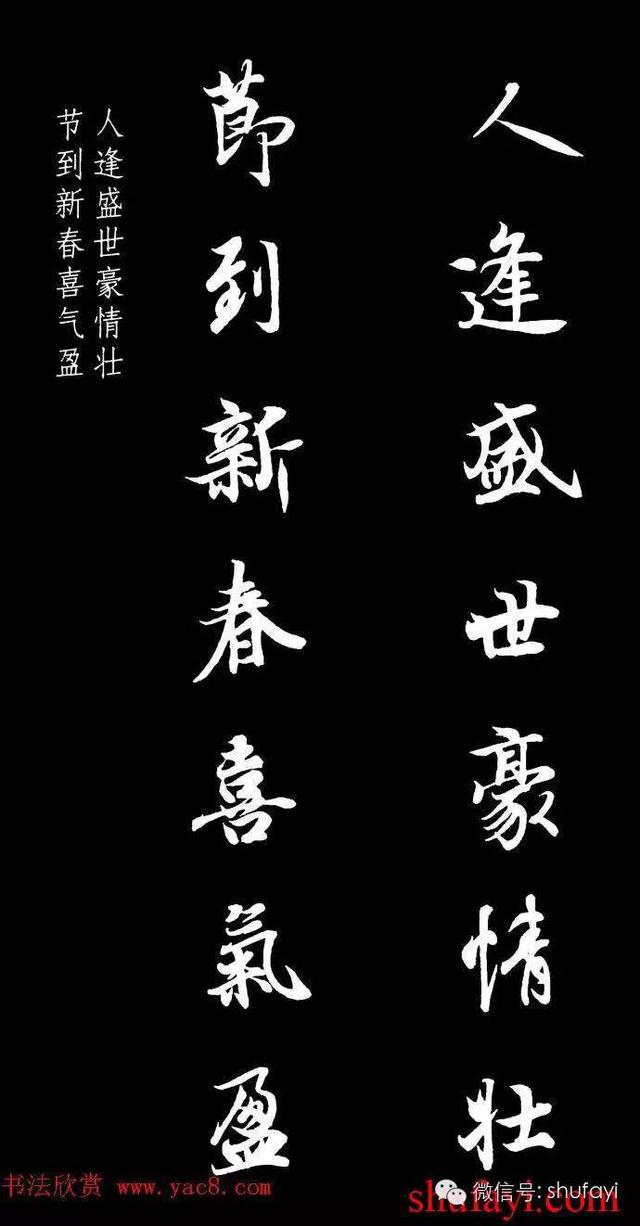 人逢盛世豪情壮
節到新春喜氣盈
人逢盛世豪情壮
节到新春喜气盈
书法欣赏 www.yac8.com
微信号: shufayi
shufayi.com